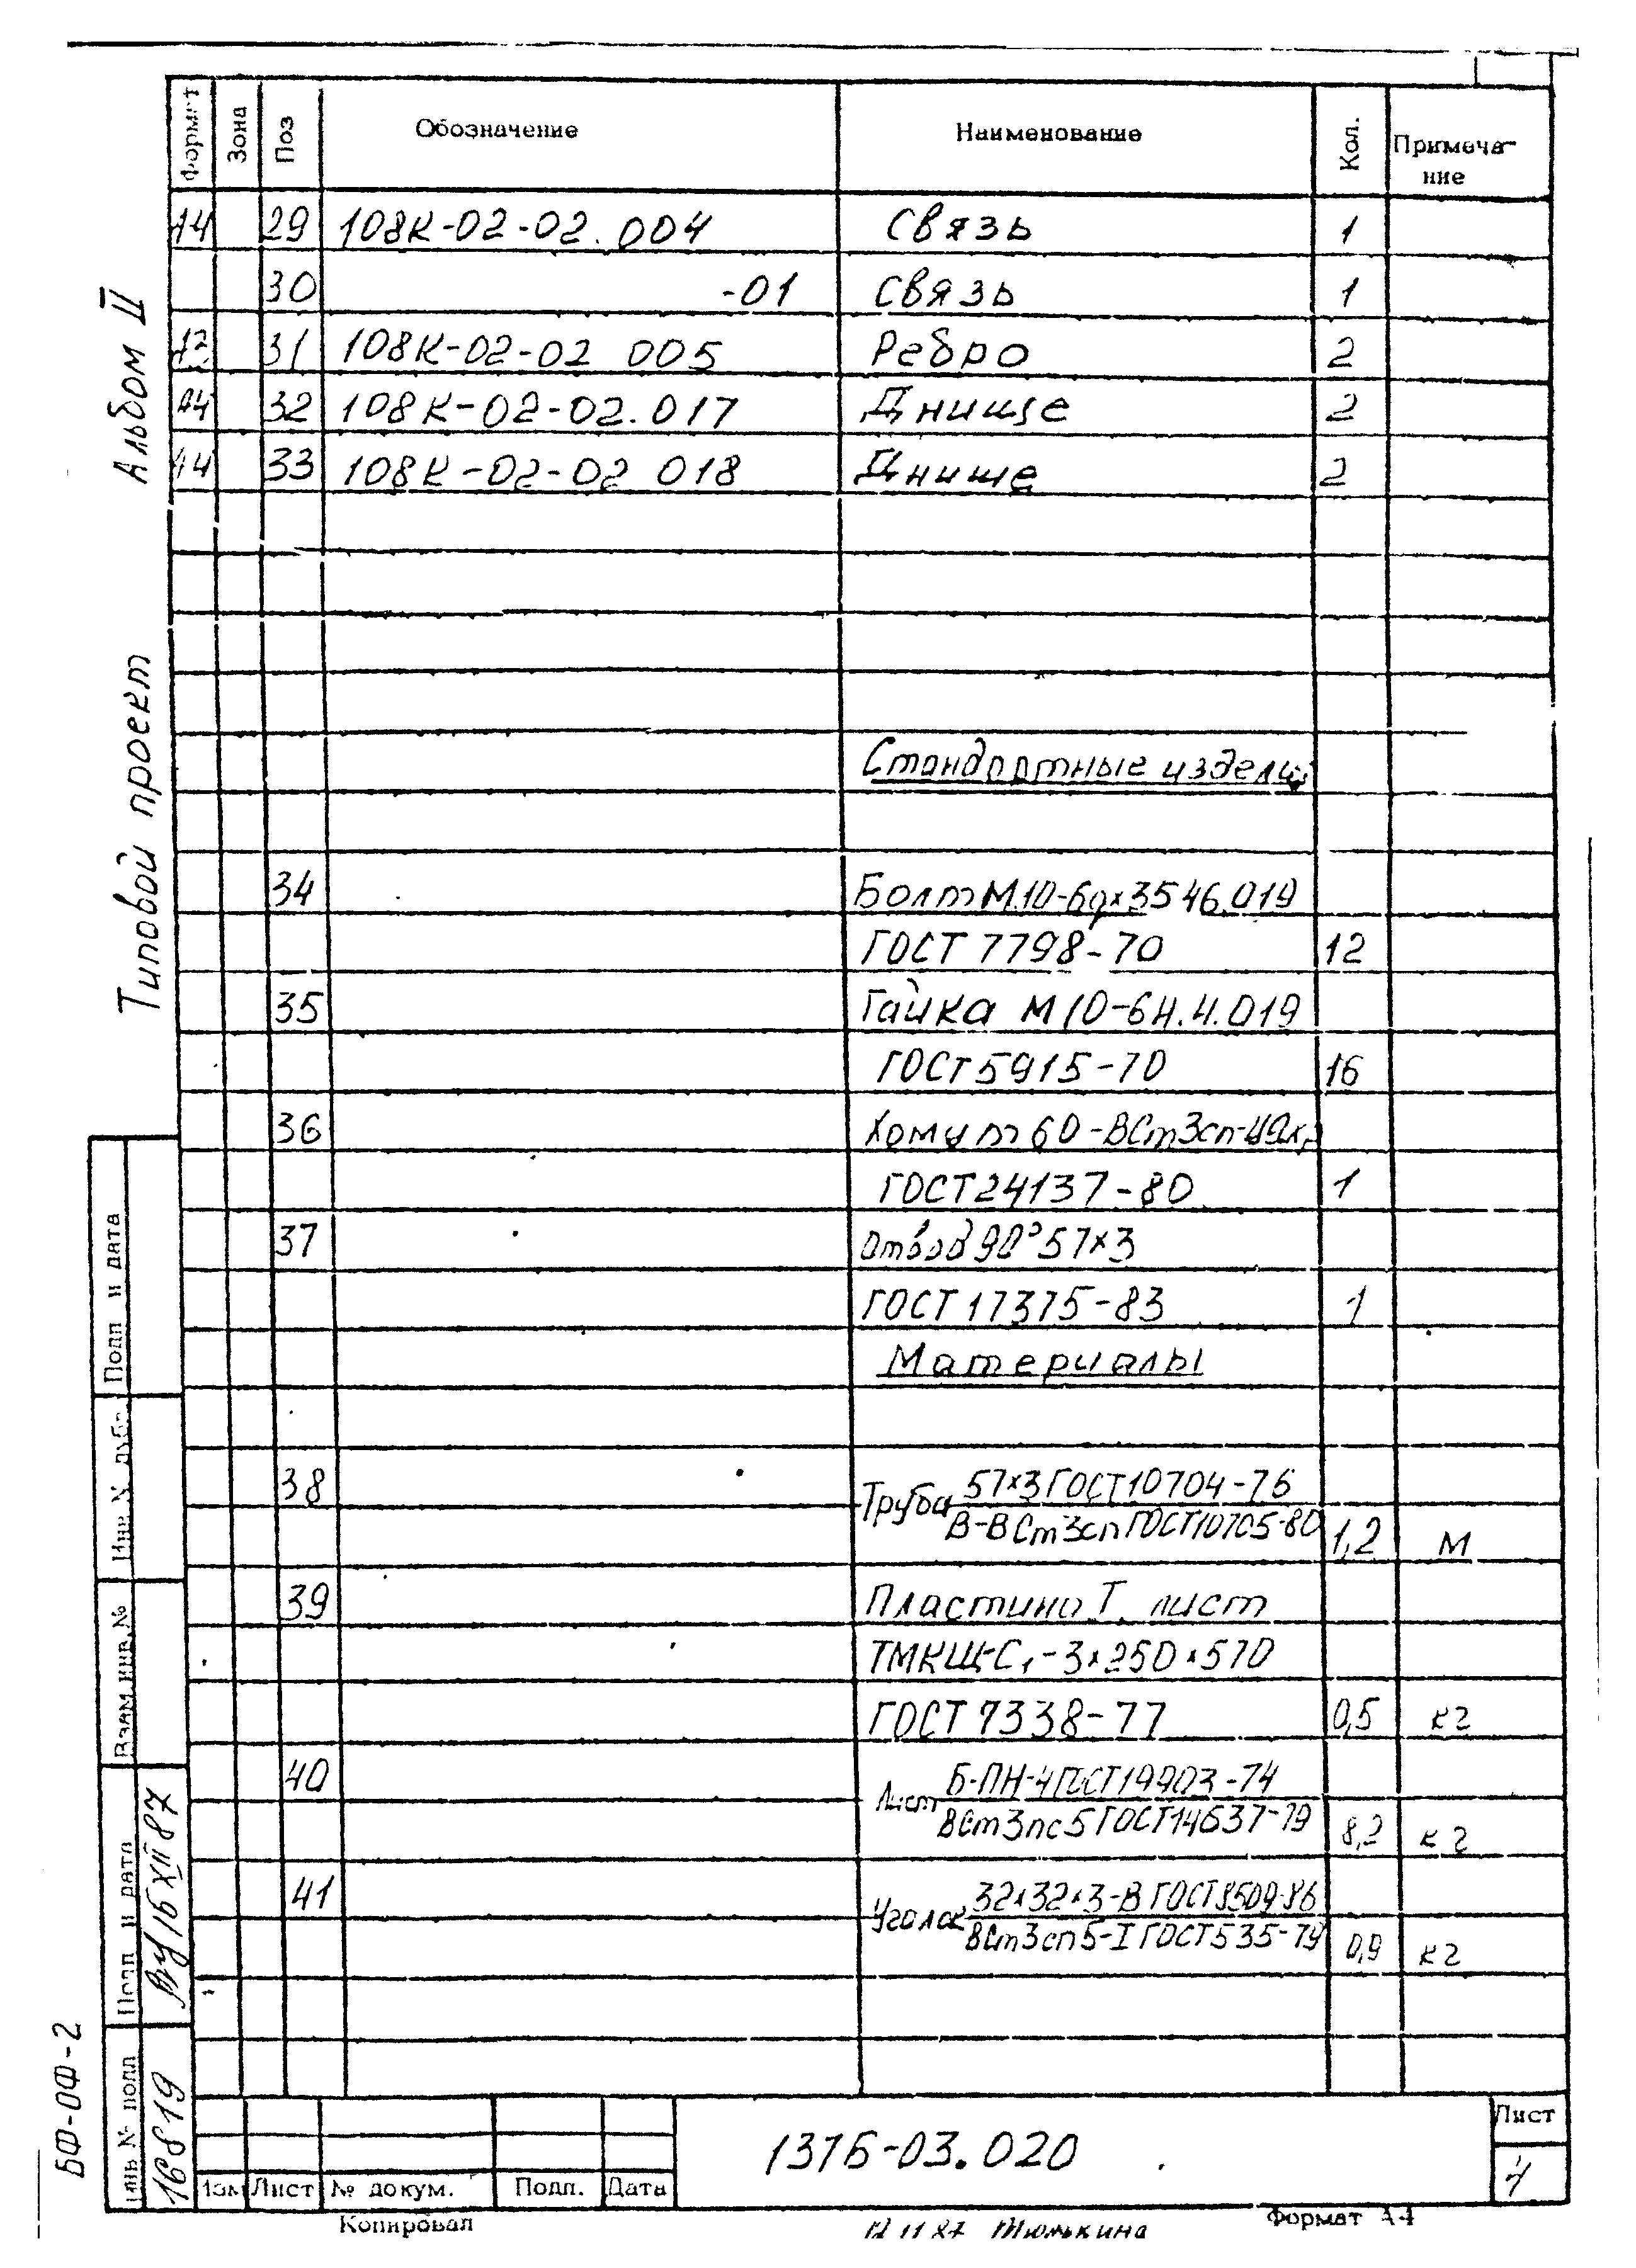 Формат Зона Поз Обозначение Наименование Кол. Примеча-
ние
А4 29 108К-02-02.004 Связь 1
30 -01 Связь 1
А3 31 108К-02-02 005 Ребро 2
А4 32 108К-02-02.017 Днище 2
А4 33 108К-02-02 018 Днище 2
Стандартные изделия
34 Болт М10-6gх35 46.019
ГОСТ 7798-70 12
35 Гайка М10-6Н.4.019
ГОСТ 5915-70 16
36 Хомут 60-ВСт3сп-
ГОСТ 24137-80 1
37 Отвод 90°57х3
ГОСТ 17375-83 1
Материалы
38 Труба 57х3 ГОСТ 10704-76
В-ВСт3сп ГОСТ 10705-80 1,2 м
39 Пластина Т. лист
ТМКЩ-С1-3х250х570
ГОСТ 7338-77 0,5 кг
40 Лист Б-ПН-4 ГОСТ 19903-74
ВСт3пс5 ГОСТ 14637-79 8,2 кг
41 Уголок 32х32х3-В ГОСТ 8509-86
ВСт3сп5-I ГОСТ 535-79 0,9 кг
Типовой проект Альбом II
Подп и дата
Инв.N дубл
Взам.инв.№
Подп и дата 16 XII 87
Инв № подл 16819
БФ-ОФ-2
Изм Лист № докум. Подп. Дата
137Б-03.020
Лист
4
Копировал 12 11 87 Тюлькина Формат А4